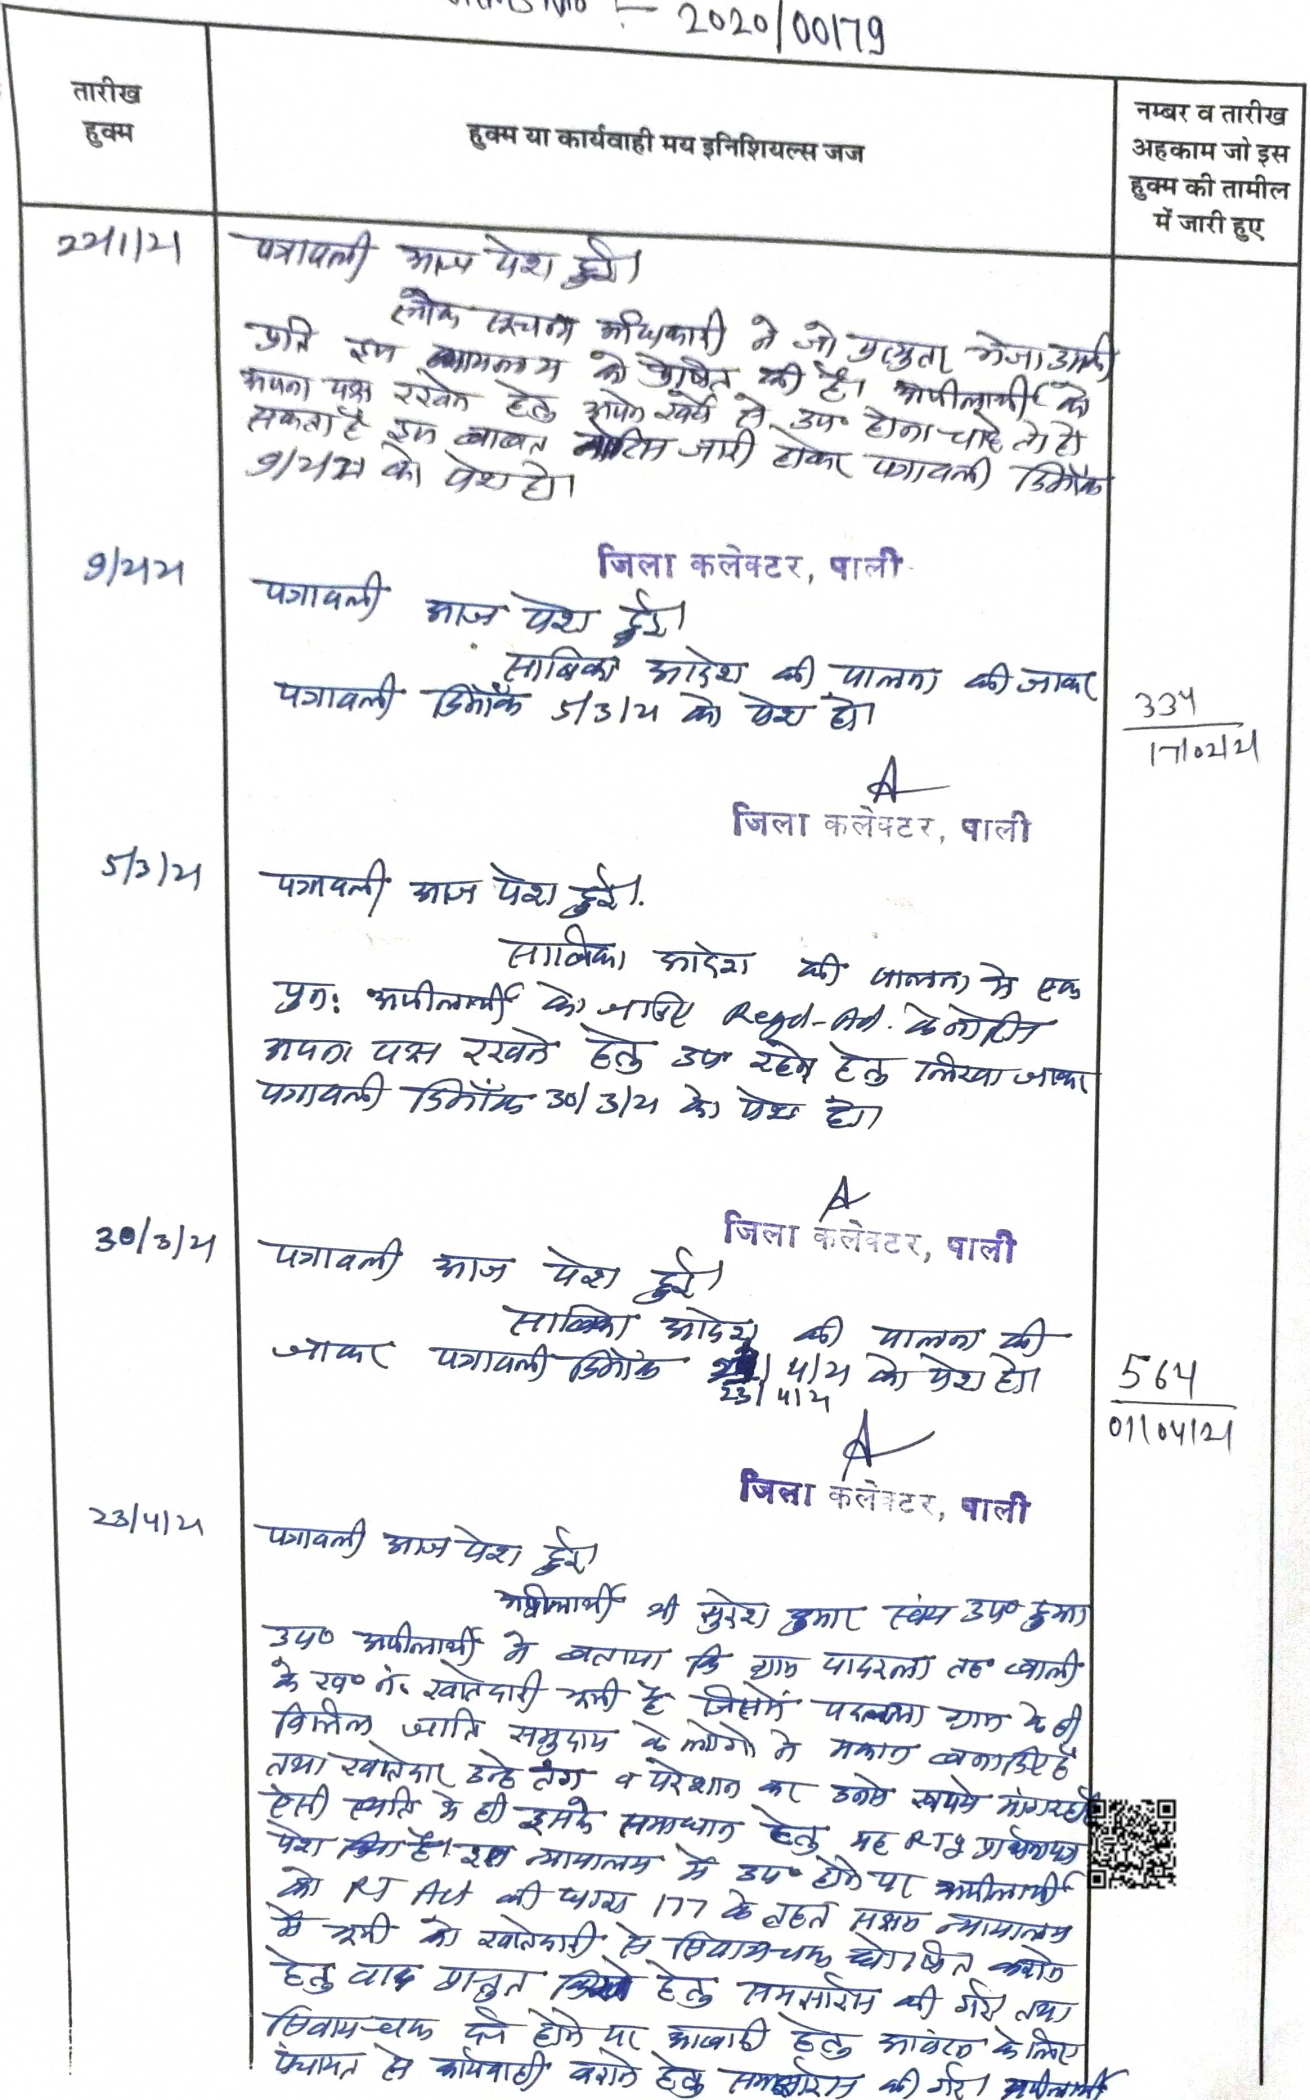 2020/00179
तारीख
हुक्म
हुक्म या कार्यवाही मय इनिशियल्स जज
नम्बर व तारीख
अहकाम जो इस
हुक्म की तामील
में जारी हुए
22/1/21
पत्रावली आज पेश हुई।
लोक सूचना अधिकारी ने जो प्रत्युत्तर भेजा उसकी
प्रति इस न्यायालय को प्रेषित की है। अपीलार्थी को
अपना पक्ष रखने हेतु अपने खर्चे से उप० होना चाहे तो हो
सकता है इस बाबत नोटिस जारी होकर पत्रावली दिनांक
9/2/21 को पेश हो।
जिला कलेक्टर, पाली
9/2/21
पत्रावली आज पेश हुई।
साबिका आदेश की पालना की जाकर
पत्रावली दिनांक 5/3/21 को पेश हो।
334
17/02/21
जिला कलेक्टर, पाली
5/3/21
पत्रावली आज पेश हुई।
साबिका आदेश की पालना में एक
पुन: अपीलार्थी को जरिए Regd-Ad. के नोटिस
अपना पक्ष रखने हेतु उप रहने हेतु लिखा जाकर
पत्रावली दिनांक 30/3/21 को पेश हो।
जिला कलेक्टर, पाली
30/3/21
पत्रावली आज पेश हुई।
साबिका आदेश की पालना की
जाकर पत्रावली दिनांक 4/21 को पेश हो।
23/4/21
564
01/04/21
जिला कलेक्टर, पाली
23/4/21
पत्रावली आज पेश हुई।
अपीलार्थी श्री सुरेश कुमार स्वंय उप० हुआ।
उप० अपीलार्थी ने बताया कि ग्राम पादरला तह० बाली
के ख० नं० खातेदारी भूमि है जिसमें पादरला ग्राम के ही
विभिन्न जाति समुदाय के लोगो ने मकान बना दिए है
तथा खातेदार उन्हे तंग व परेशान कर उनसे रूपये मांग रहे है
ऐसी स्थिति में ही इसके समाधान हेतु यह RTI प्रार्थनापत्र
पेश किया है। इस न्यायालय में उप० होने पर अपीलार्थी
को RT Act की धारा 177 के तहत सक्षम न्यायालय
में भूमी को खातेदारी से सिवायचक घोषित कराने
हेतु वाद प्रस्तुत हेतु समझाईस की गई तथा
सिवाय-चक दर्ज होने पर आबादी हेतु आवंटन के लिए
पंचायत से कार्यवाही कराने हेतु समझाईस की गई। अपीलार्थी